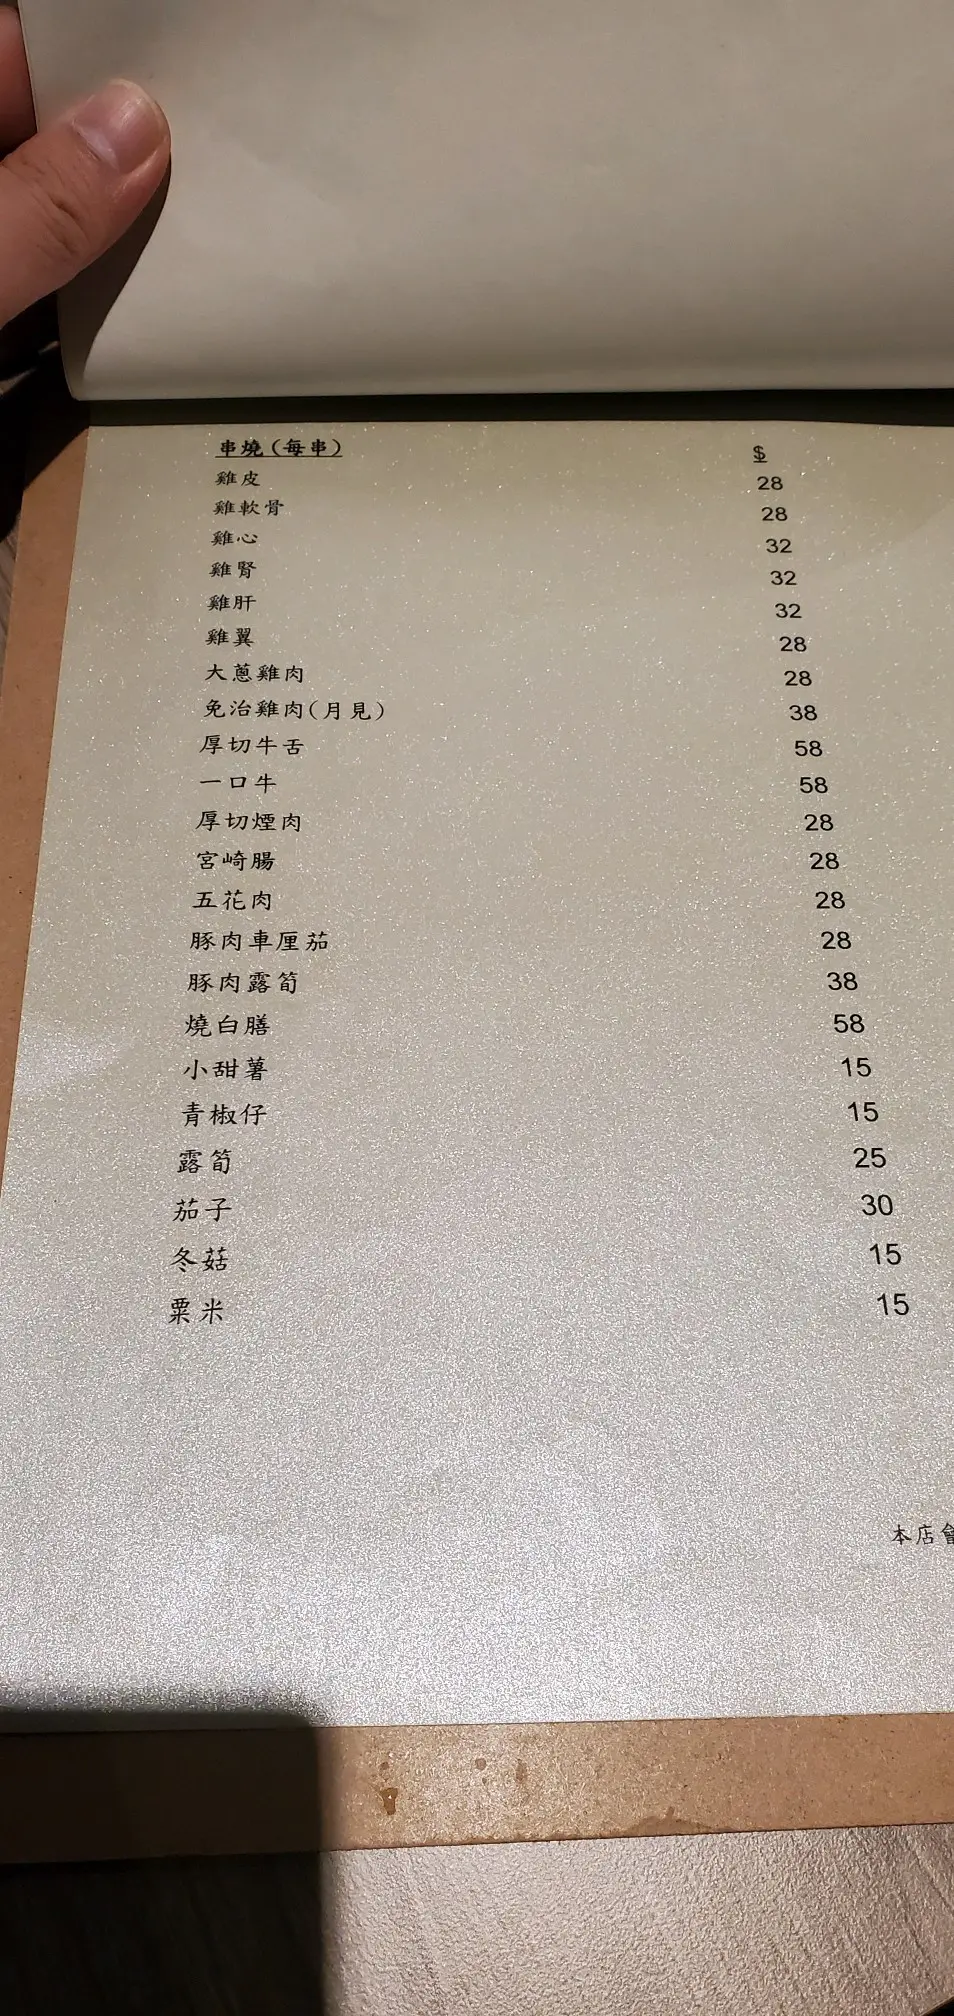 串燒(每串) $
雞皮 28
雞軟骨 28
雞心 32
雞腎 32
雞肝 32
雞翼 28
大蔥雞肉 28
免治雞肉(月見) 38
厚切牛舌 58
一口牛 58
厚切煙肉 28
宮崎腸 28
五花肉 28
豚肉車厘茄 28
豚肉露筍 38
燒白膳 58
小甜薯 15
青椒仔 15
露筍 25
茄子 30
冬菇 15
粟米 15
本店會